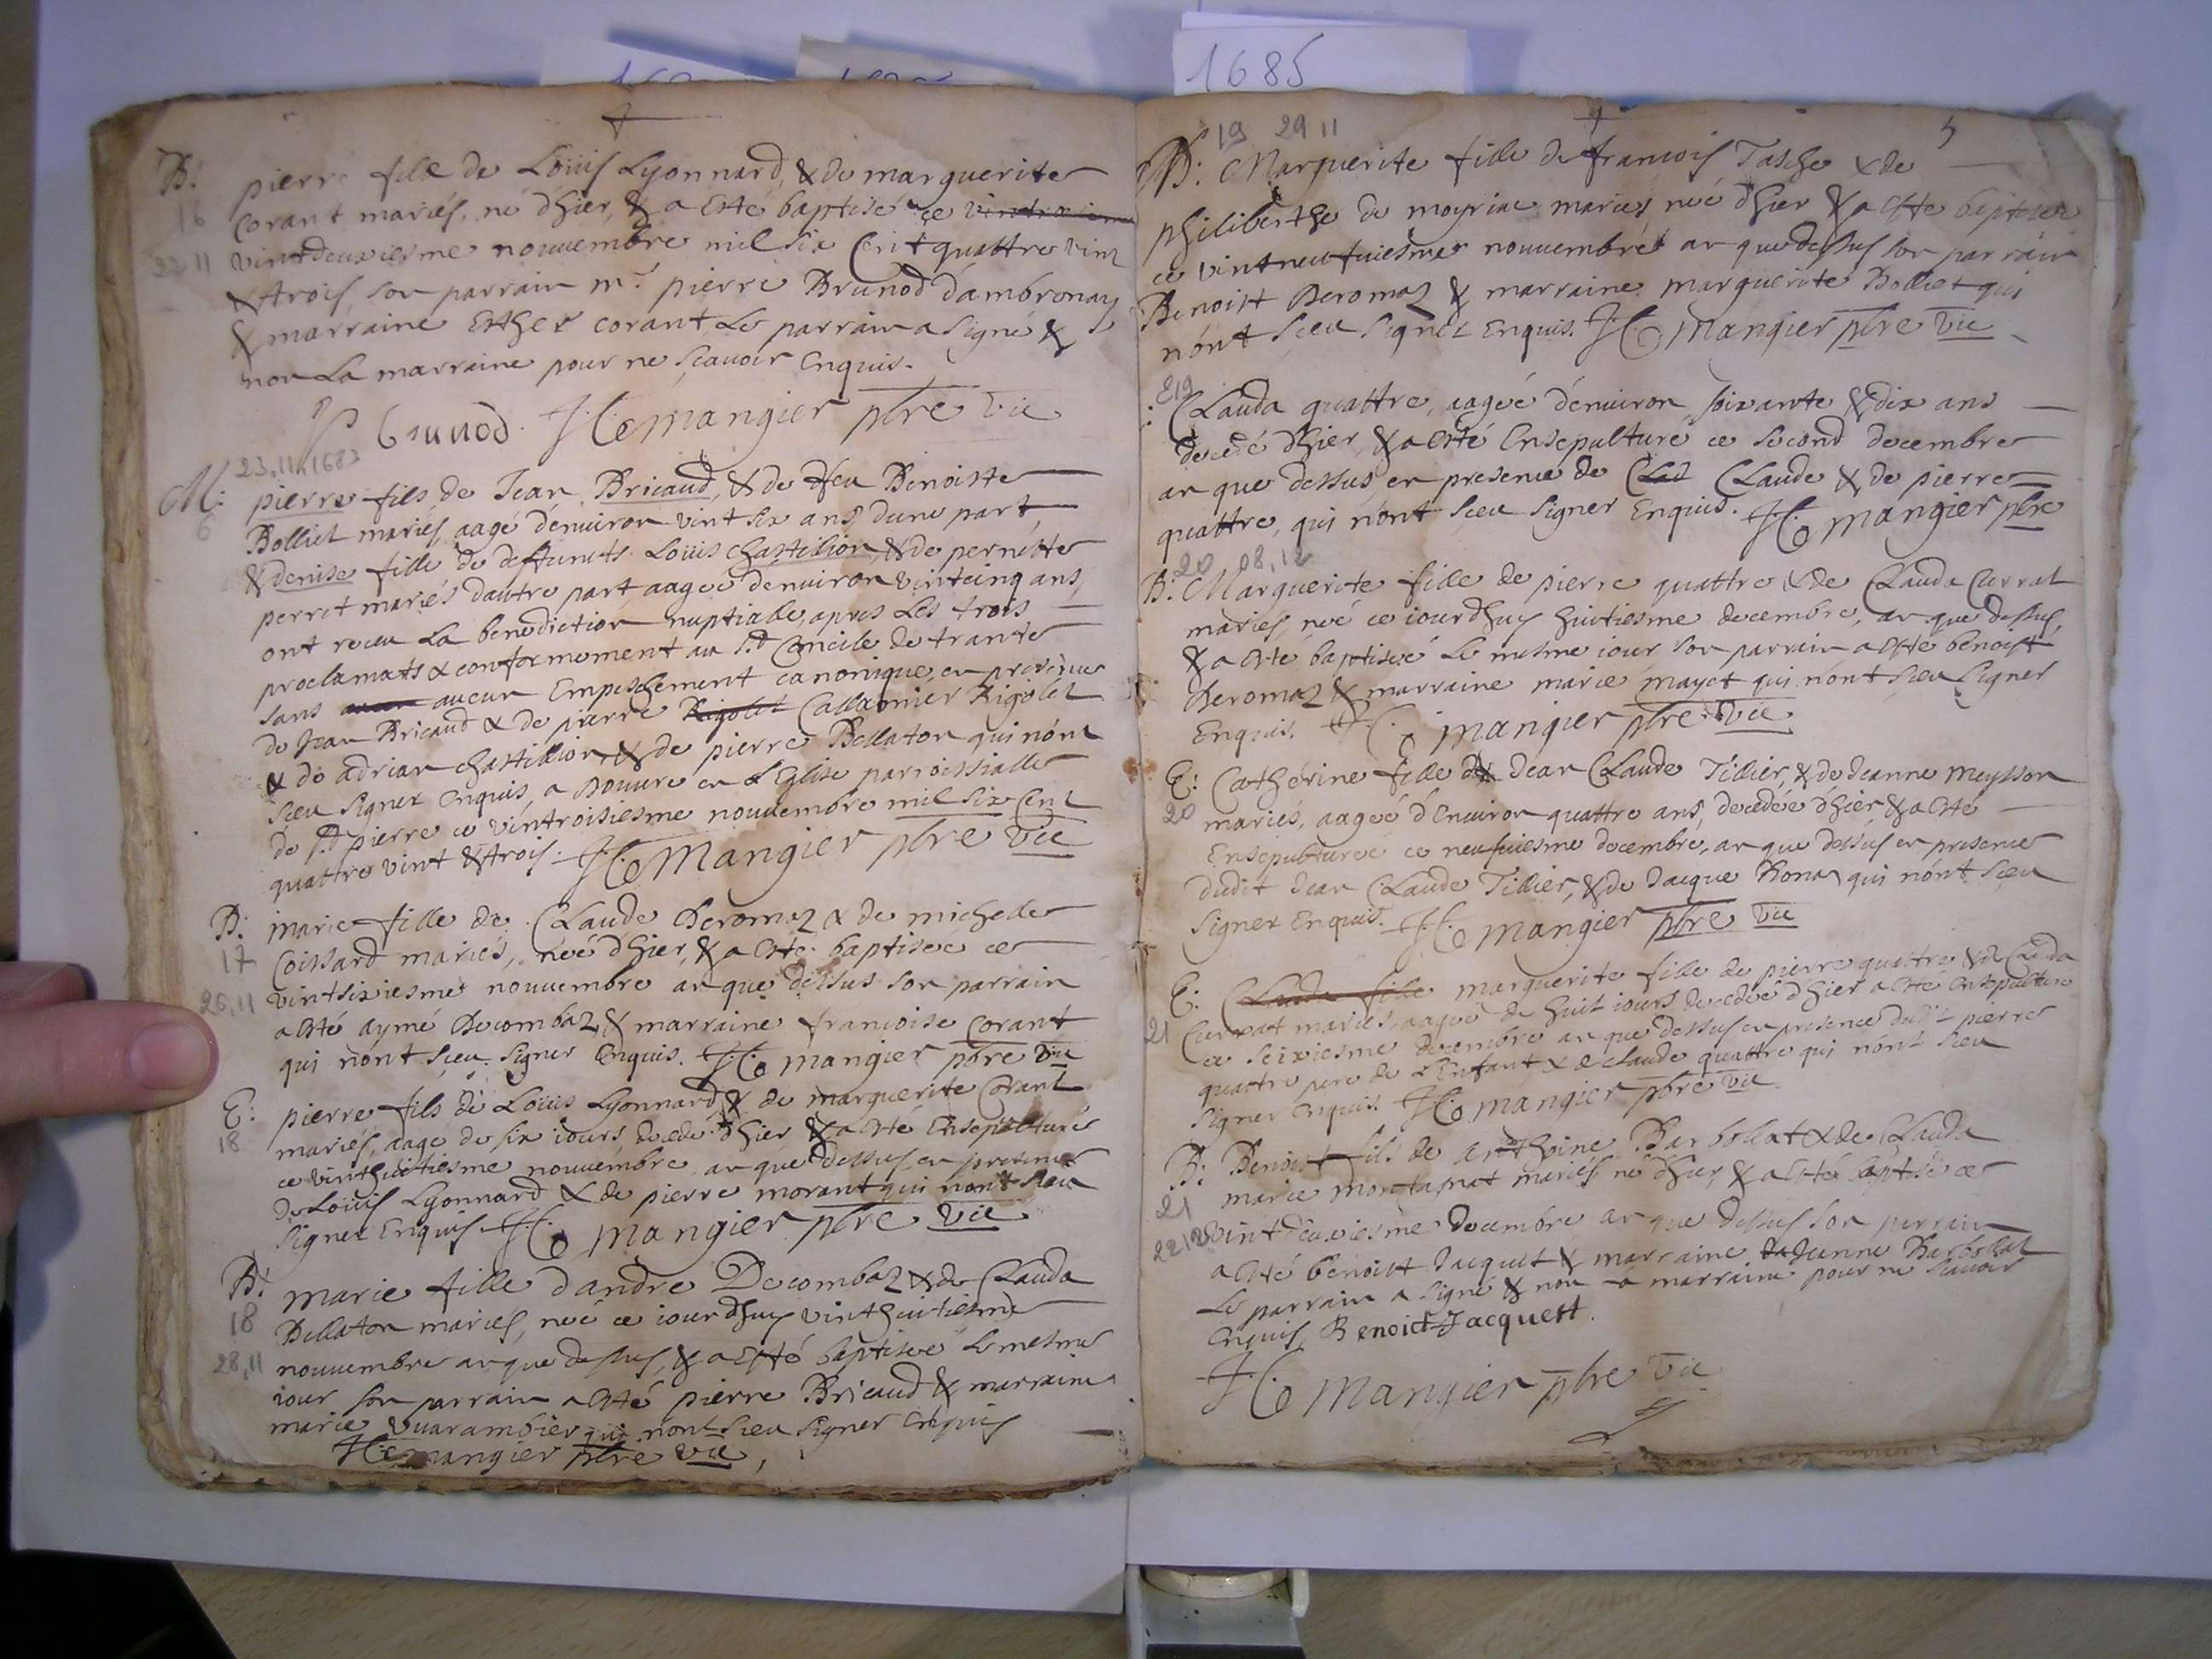 1685
B: pierre fils de Loüis Lyonnard, & de marguerite
16 Corant mariés, né d'hier, & a esté baptisé ce
22 11 vintdeuxiesme nouuembre mil six Cent quattre vint
& trois, son parrain mr. pierre Brunod d'ambronay
& marraine Esther corant, Le parrain a signé &
non La marraine pour ne scauoir Enquis.
P Brunod. JC mangier pbre vic
23.11.1683
M: pierre fils de Jean Bricaud, & de feu Benoiste
6 Bolliet mariés, aagé d'enuiron vint six ans, dune part,
& denise fille de deffuncts Loüis chastillion, & de pernette
perret mariés dautre part, aageé denuiron vintcinq ans,
ont receu La benediction nuptialle, apres Les trois
proclamats & conformement au St Concile de trante
sans aucun aucun Empeschement canonique, en presence
de Jean Bricaud & de pierre Rigolet Callamier Rigolet
& de adrian chastillion, & de pierre Bellaton qui n'ont
sceu signer enquis, a Douure en L'Eglise parroissialle
de St pierre ce vintroisiesme nouuembre mil six Cent
quattre vint & trois. JC Mangier pbre vic
B: marie fille de Claude Deromaz & de michelle
17 Coissard mariés, neé d'hier, & a esté baptiseé ce
26,11 vintsixiesme nouuembre an que dessus son parrain
a esté aymé Decombaz, & marraine francoise Corant
qui n'ont sceu signer Enquis. JC mangier pbre vic
E: pierre fils de Loüis Lyonnard, & de marguerite Corant
18 mariés, aagé de six iours, decedé d'hier & a esté Ensepulturé
ce vinthuitiesme nouuembre an que dessus en presence
de Loüis Lyonnard & de pierre morant qui n'ont sceu
signer Enquis JC mangier pbre vic
B: marie fille d'andre Decombaz & de Clauda
18 Bellaton mariés, neé ce iourdhuy vinthuitiesme
28,11 nouuembre an que dessus, & a esté baptiseé Le mesme
iour son parrain a esté pierre Bricaud & marraine
marie uuarambier qui n'ont sceu signer Enquis
JC mangier pbre vic
19 29 11 5
B: Marguerite fille de francois Tasche & de
philiberthe de moyriac mariés neé d'hier & a esté baptiseé
ce vintneufuiesme nouuembre an que dessus son parrain
Benoist Deromaz & marraine marguerite Bolliet qui
n'ont sceu signer Enquis. JC Mangier pbre vic
E 19
Clauda quattre, aageé d'enuiron soixante & dix ans
decedé d'hier, & a esté Ensepulturé ce second decembre
an que dessus en presence de Claude & de pierre
quattre, qui n'ont sceu signer Enquis. JC mangier pbre
20 08,12
B: Marguerite fille de pierre quattre & de Clauda Currat
mariés, neé ce iourdhuy huitiesme decembre, an que dessus,
& a esté baptiseé Le mesme iour son parrain a esté benoist
Deromaz & marraine marie mayet qui n'ont sceu signer
Enquis. JC mangier pbre vic
E: Catherine fille de Jean Claude Tillier, & de Jeanne meysson
20 mariés, aageé d'Enuiron quattre ans, decedeé d'hier, & a esté
Ensepultureé ce neufuiesme decembre, an que dessus en presence
dudit Jean Claude Tillier, & de Jacque Bona qui n'ont sceu
signer Enquis. JC mangier pbre vic
E: Clauda fille marguerite fille de pierre quattre & de Clauda
21 Currat mariés, aageé de huit iours decedeé d'hier a esté ensepultureé
ce seixiesme decembre an que dessus en presence dudit pierre
quattre pere de L'Enfant & de claude quattre qui n'ont sceu
signer Enquis. JC mangier pbre vic
B: Benoist fils de anthoine Barbollat & de Clauda
21 marie montagnat mariés né d'hier, & a esté baptisé ce
22 12 vintdeuxiesme decembre an que dessus son parrain
a esté benoist Jacquet & marraine Jeanne Barbollat
Le parrain a signé & non La marraine pour ne scauoir
Enquis, Benoict Jacquett.
JC Mangier pbre vic